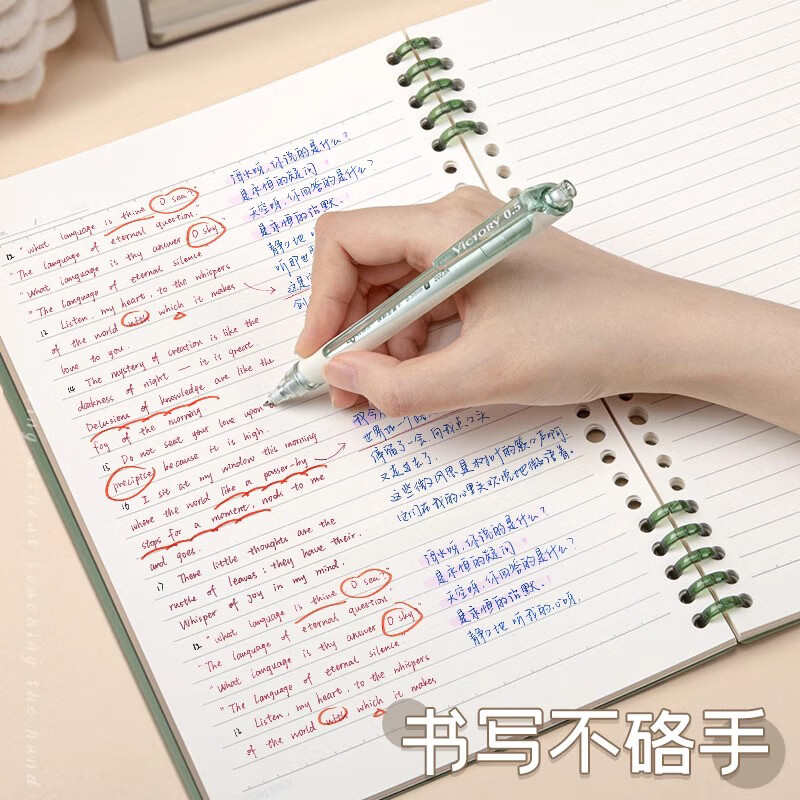 12 "What language is thine O sea?"
"The language of eternal question."
"What language is thy answer O sky"
"The Language of eternal silence
13 Listen, my heart, to the whispers
of the world with which it makes
love to you.
14 The mystery of creation is like the
darkness of night — it is great.
Delusions of knowledge are like the
fog of the morning
15 Do not seat your love upon a
precipice because it is high.
16 I sit at my window this morning
where the world like a passer-by
stops for a moment, nods to me
and goes.
17 There little thoughts are the
rustle of leaves; they have their
Whisper of joy in my mind.
12 "What language is thine O sea?
"The language of eternal question."
"What language is thy answer O sky"
"The Language of eternal silence
13 Listen, my heart, to the whispers
of the world with which it makes
海水呀,你说的是什么?
是永恒的疑问
天空呀,你回答的是什么?
是永恒的沉默.
静静地
听那世
这是
创
世界如一个
停留了一会,向我点点头
又走过去了.
这些微
海水呀,你说的是什么?
是永恒的疑问
天空呀,你回答的是什么?
是永恒的沉默.
静静地听我的心呀.
VICTORY 0.5
书写不硌手